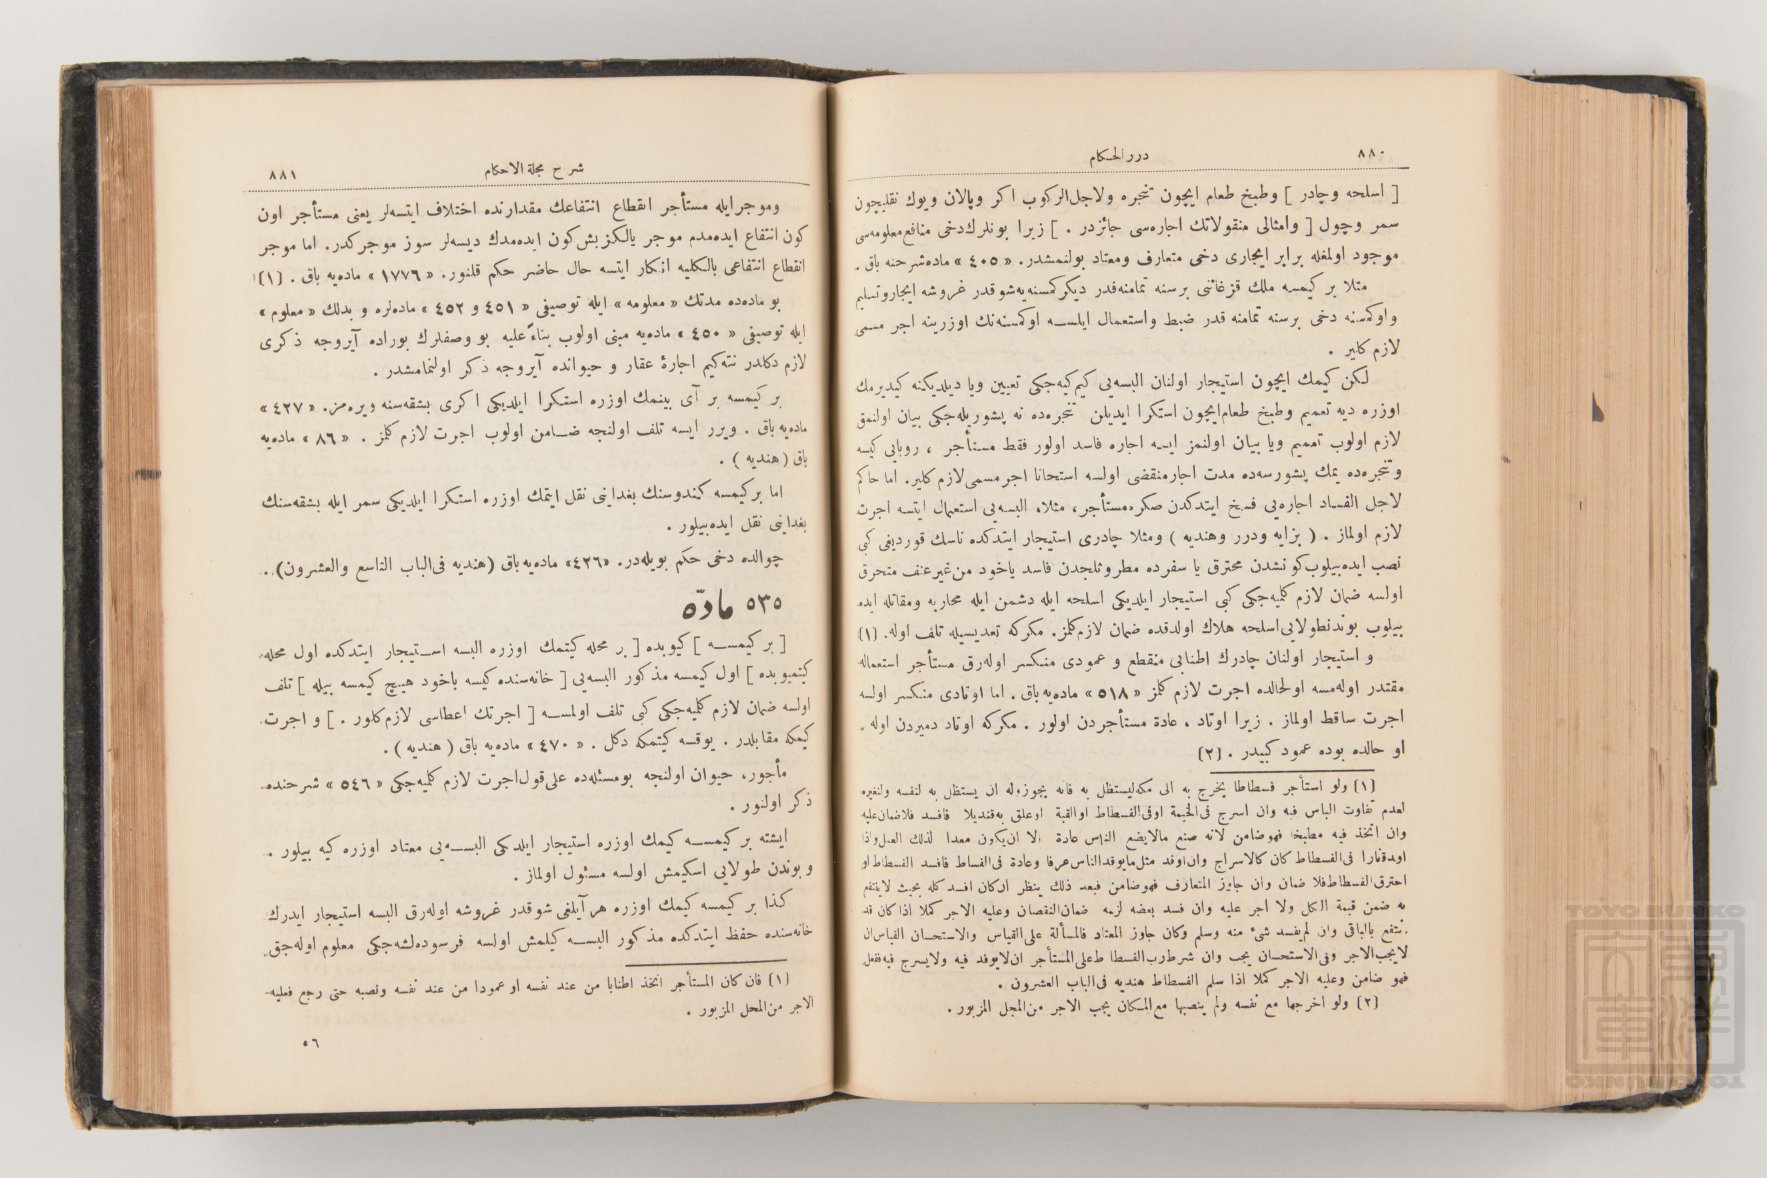 ٨٨٠
درر الحكام
[ اسلحه وچادر ] وطبخ طعام ايچون تنجره ولاجل الركوب اكر وپالان ويوك نقليچون
سمر وچول [ وامثالى منقولاتك اجاره‌سى جائزدر . ] زيرا بونلرك دخى منافع معلومه‌سى
موجود اولمغله برابر ايجارى دخى متعارف ومعتاد بولنمشدر. « ٤٠٥ » ماده شرحنه باق .
مثلا بر كيمسه ملك قزغاننى برسنه تمامنه‌قدر ديكر كمسنه‌يه شو قدر غروشه ايجار وتسليم
واوكمسنه دخى برسنه تمامنه قدر ضبط واستعمال ايلسه اوكمسنه‌نك اوزرينه اجر مسمى
لازم كلير .
لكن كيمك ايچون استيجار اولنان البسه‌يى كيم كيه‌جكى تعيين ويا ديلديكنه كيديرمك
اوزره ديه تعميم وطبخ طعام ايچون استكرا ايديلن تنجره‌ده نه پشوريله‌جكى بيان اولنمق
لازم اولوب تعميم ويا بيان اولنمز ايسه اجاره فاسد اولور فقط مستأجر ، روبايى كيسه
وتنجره‌ده يمك پشورسه‌ده مدت اجار منقضى اولسه استحسانا اجر مسمى لازم كلير. اما حاكم
لاجل الفساد اجاره‌يى فسخ ايتدكدن صكره مستأجر، مثلا، البسه‌يى استعمال ايتسه اجرت
لازم اولماز . ( بزايه ودرر وهنديه ) ومثلا چادرى استيجار ايتدكده ناسك قورديغى كبى
نصب ايده‌بيلوب كونشدن محترق يا سفرده مطر وثلجدن فاسد ياخود من غير عنف متحرق
اولسه ضمان لازم كليه‌جكى كبى استيجار ايلديكى اسلحه ايله دشمن ايله محاربه ومقاتله ايده
بيلوب بوندنطولايى اسلحه هلاك اولدقده ضمان لازم كلمز. مكركه تعديسيله تلف اوله. (١)
و استيجار اولنان چادرك اطنابى منقطع و عمودى منكسر اوله‌رق مستأجر استعماله
مقتدر اوله‌مسه اولحالده اجرت لازم كلمز « ٥١٨ » ماده‌يه باق . اما اوتادى منكسر اولسه
اجرت ساقط اولماز . زيرا اوتاد ، عادة مستأجردن اولور . مكركه اوتاد دميردن اوله .
او حالده بوده عمود كبيدر . (٢)
(١) ولو استأجر فسطاطا يخرج به الى مكه ليستظل به فانه يجوز وله ان يستظل به لنفسه ولغيره
لعدم تفاوت الناس فيه وان اسرج فى الخيمة اوفى الفسطاط اوالقبة اوعلق به قنديلا فافسد فلا ضمان عليه
وان اتخذ فيه مطبخا فهو ضامن لانه صنع مالايضع الناس عادة الا ان يكون معدا لذلك العمل واذا
اوقدنارا فى الفسطاط كان كالاسراج وان اوقد مثل مايوقد الناس عرفا وعادة فى الفسطاط فافسد الفسطاط او
احترق الفسطاط فلا ضمان وان جاوز المتعارف فهو ضامن فبعد ذلك ينظر ان كان افسد كله بحيث لاينتفع
به ضمن قيمة الكل ولا اجر عليه وان فسد بعضه لزمه ضمان النقصان وعليه الاجر كملا اذا كان قد
انتفع بالباقى وان لم يفسد شئ منه وسلم وكان جاوز المعتاد فالمسألة على القياس والاستحسان القياس ان
لايجب الاجر وفى الاستحسان يجب وان شرط رب الفسطاط على المستأجر ان لايوقد فيه ولايسرج فيه ففعل
فهو ضامن وعليه الاجر كملا اذا سلم الفسطاط هنديه فى الباب العشرون .
(٢) ولو اخرجها مع نفسه ولم ينصبها مع المكان يجب الاجر من المحل المزبور .
شرح مجلة الاحكام
٨٨١
وموجر ايله مستأجر انقطاع انتفاعك مقدارنده اختلاف ايتسه‌لر يعنى مستأجر اون
كون انتفاع ايده‌مدم موجر يالكز بش كون ايده‌مدك ديسه‌لر سوز موجركدر. اما موجر
انقطاع انتفاعى بالكليه انكار ايتسه حال حاضر حكم قلنور. « ١٧٧٦ » ماده‌يه باق . (١)
بو ماده‌ده مدتك « معلومه » ايله توصيفى « ٤٥١ و ٤٥٢ » ماده‌لره و بدلك « معلوم »
ايله توصيفى « ٤٥٠ » ماده‌يه مبنى اولوب بناءً عليه بو وصفلرك بوراده آيروجه ذكرى
لازم دكلدر نته‌كيم اجارهٔ عقار و حيوانده آيروجه ذكر اولنمامشدر .
بر كيمسه بر آى بينمك اوزره استكرا ايلديكى اكرى بشقه‌سنه ويره‌مز. « ٤٢٧ »
ماده‌يه باق . ويرر ايسه تلف اولنجه ضامن اولوب اجرت لازم كلمز . « ٨٦ » ماده‌يه
باق ( هنديه ) .
اما بر كيمسه كندوسنك بغداينى نقل ايتمك اوزره استكرا ايلديكى سمر ايله بشقه‌سنك
بغداينى نقل ايده‌بيلور .
چوالده دخى حكم بويله‌در. «٤٢٦» ماده‌يه باق (هنديه فى الباب التاسع والعشرون) .
٥٣٥ مادّه
[ بر كيمسه ] كيوبده [ بر محله كيتمك اوزره البسه استيجار ايتدكده اول محله
كيتميوبده ] اول كيمسه مذكور البسه‌يى [ خانه‌سنده كيسه ياخود هيچ كيمسه بيله ] تلف
اولسه ضمان لازم كليه‌جكى كبى تلف اولمسه [ اجرتك اعطاسى لازم كلور . ] و اجرت
كيمكه مقابلدر . يوقسه كيتمكه دكل . « ٤٧٠ » ماده‌يه باق ( هنديه ) .
مأجور، حيوان اولنجه بومسئله‌ده على قول اجرت لازم كليه‌جكى « ٥٤٦ » شرحنده
ذكر اولنور .
ايشته بر كيمسه كيمك اوزره استيجار ايلدكى البسه‌يى معتاد اوزره كيه بيلور .
و بوندن طولايى اسكيمش اولسه مسئول اولماز .
كذا بر كيمسه كيمك اوزره هر آيلغى شو قدر غروشه اوله‌رق البسه استيجار ايدرك
خانه‌سنده حفظ ايتدكده مذكور البسه كيلمش اولسه فرسوده‌لشه‌جكى معلوم اوله‌جق
(١) فان كان المستأجر اتخذ اطنابا من عند نفسه او عمودا من عند نفسه ونصبه حتى رجع فعليه
الاجر من المحل المزبور .
٥٦
TOYO BUNKO
東洋文庫